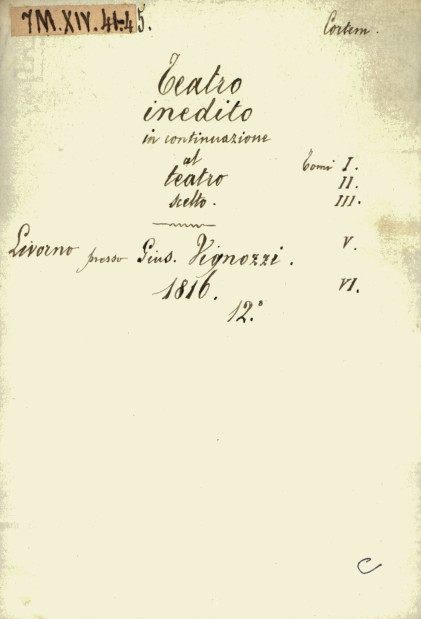 7M.XIV.41-45.
Cortem.
Teatro
inedito
in continuazione
al
teatro
scelto.
Tomi I.
II.
III.
V.
VI.
Livorno presso Gius. Vignozzi.
1816.
12.º
C